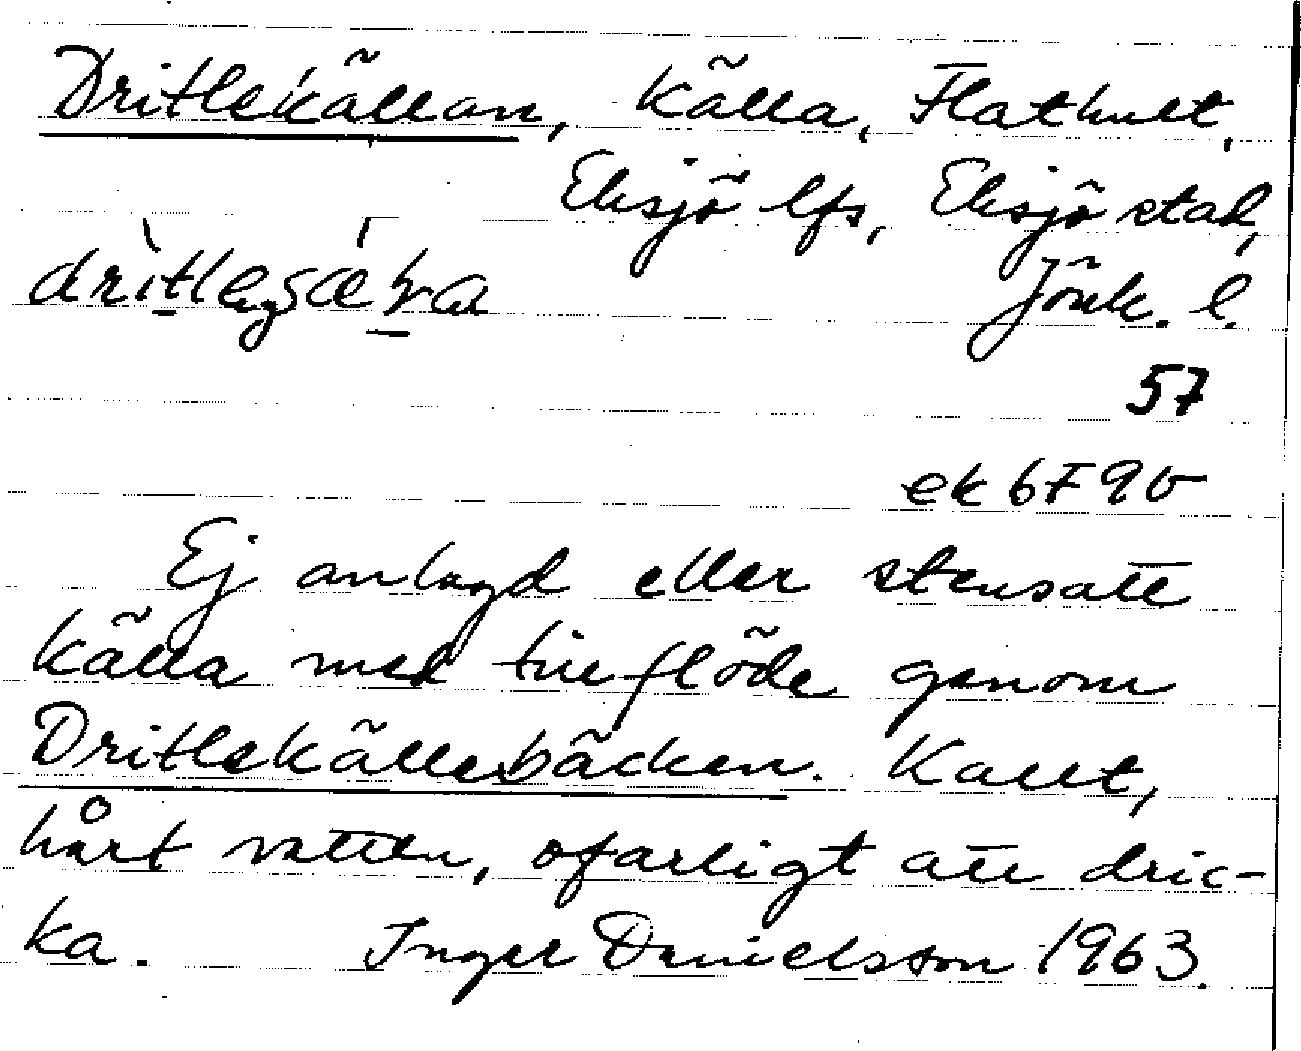 Dritlekällan, källa, Flathult,
Eksjö lfs, Eksjö stad,
Jönk. l.
57
ek 6F9b
Ej anlagd eller stensatt
källa med tillflöde genom
Dritlekällebäcken. Kallt,
hårt vatten, ofarligt att dric-
ka. Inger Danielsson 1963.